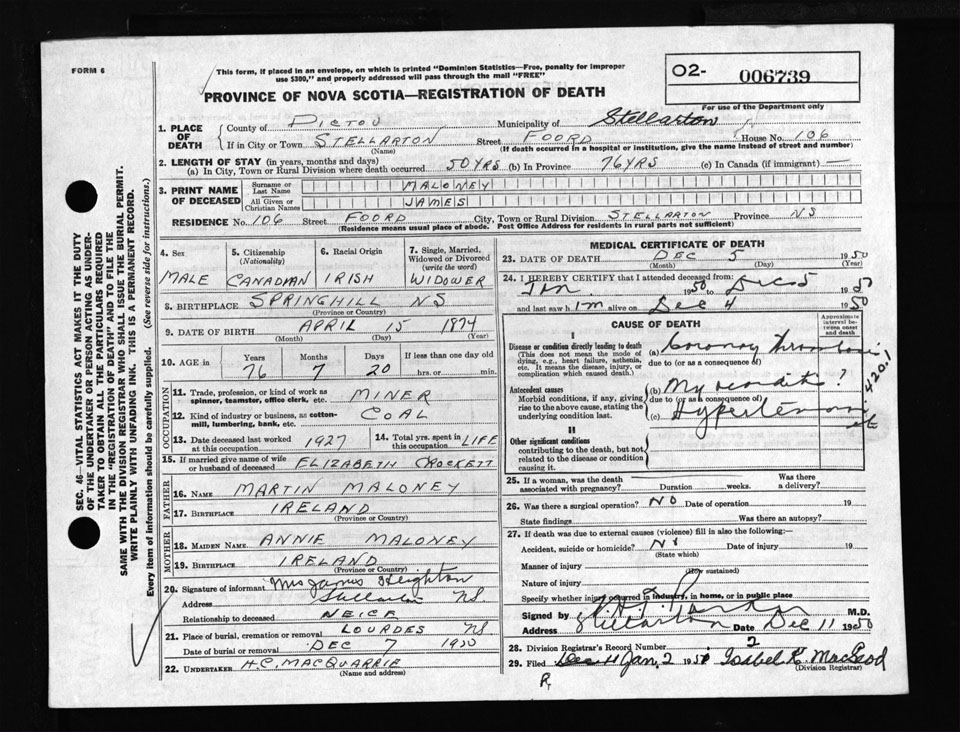 FORM 6
This form, if placed in an envelope, on which is printed "Dominion Statistics—Free, penalty for improper
use $300," and properly addressed will pass through the mail "FREE"
PROVINCE OF NOVA SCOTIA—REGISTRATION OF DEATH
02- 006739
For use of the Department only
1. PLACE OF DEATH
County of PICTOU Municipality of Stellarton
If in City or Town STELLARTON Street FOORD House No. 106
(Name) (If death occurred in a hospital or institution, give the name instead of street and number)
2. LENGTH OF STAY (in years, months and days)
(a) In City, Town or Rural Division where death occurred 50 YRS (b) In Province 76 YRS (c) In Canada (if immigrant) —
3. PRINT NAME OF DECEASED
Surname or Last Name MALONEY
All Given or Christian Names JAMES
RESIDENCE No. 106 Street FOORD City, Town or Rural Division STELLARTON Province NS
(Residence means usual place of abode. Post Office Address for residents in rural parts not sufficient)
4. Sex
MALE
5. Citizenship
(Nationality)
CANADIAN
6. Racial Origin
IRISH
7. Single, Married,
Widowed or Divorced
(write the word)
WIDOWER
8. BIRTHPLACE SPRINGHILL NS
(Province or Country)
9. DATE OF BIRTH APRIL 15 1874
(Month) (Day) (Year)
10. AGE in Years Months Days If less than one day old
76 7 20 hrs. or min.
11. Trade, profession, or kind of work as
spinner, teamster, office clerk, etc. MINER
12. Kind of industry or business, as cotton-
mill, lumbering, bank, etc. COAL
13. Date deceased last worked
at this occupation 1927
14. Total yrs. spent in
this occupation LIFE
15. If married give name of wife
or husband of deceased ELIZABETH CROCKETT
FATHER
16. NAME MARTIN MALONEY
17. BIRTHPLACE IRELAND
(Province or Country)
MOTHER
18. MAIDEN NAME ANNIE MALONEY
19. BIRTHPLACE IRELAND
(Province or Country)
20. Signature of informant Mrs James Heighton
Address Stellarton NS.
Relationship to deceased NEICE
21. Place of burial, cremation or removal LOURDES NS.
Date of burial or removal DEC 7 1950
22. UNDERTAKER H.C. MACQUARRIE
(Name and address)
MEDICAL CERTIFICATE OF DEATH
23. DATE OF DEATH DEC 5 1950
(Month) (Day) (Year)
24. I HEREBY CERTIFY that I attended deceased from:
Jan 1950 to Dec 5 1950
and last saw him alive on Dec 4 1950
CAUSE OF DEATH
Approximate
interval be-
tween onset
and death
I
Disease or condition directly leading to death
(This does not mean the mode of
dying, e.g., heart failure, asthenia,
etc. It means the disease, injury, or
complication which caused death.)
(a) Coronary Thrombosis
due to (or as a consequence of)
Antecedent causes
Morbid conditions, if any, giving
rise to the above cause, stating the
underlying condition last.
(b) Myocarditis?
due to (or as a consequence of)
(c) Hypertension
etc
420.1
II
Other significant conditions
contributing to the death, but not
related to the disease or condition
causing it.
25. If a woman, was the death
associated with pregnancy? Duration weeks. Was there
a delivery?
26. Was there a surgical operation? NO Date of operation 19
State findings Was there an autopsy?
27. If death was due to external causes (violence) fill in also the following:—
Accident, suicide or homicide? No Date of injury 19
(State which)
Manner of injury
(How sustained)
Nature of injury
Specify whether injury occurred in industry, in home, or in public place
Signed by M.D.
Address Stellarton Date Dec 11 1950
28. Division Registrar's Record Number 2
29. Filed Jan, 2 1951 Isobel K. MacLeod
(Division Registrar)
R
SEC. 46—VITAL STATISTICS ACT MAKES IT THE DUTY
OF THE UNDERTAKER OR PERSON ACTING AS UNDER-
TAKER TO OBTAIN ALL THE PARTICULARS REQUIRED
IN THE "REGISTRATION OF DEATH" AND TO FILE THE
SAME WITH THE DIVISION REGISTRAR WHO SHALL ISSUE THE BURIAL PERMIT.
WRITE PLAINLY WITH UNFADING INK. THIS IS A PERMANENT RECORD.
Every item of information should be carefully supplied. (See reverse side for instructions.)